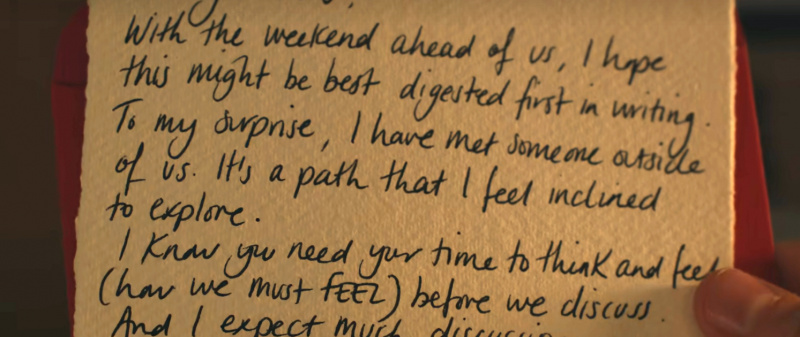 With the weekend ahead of us, I hope
this might be best digested first in writing.
To my surprise, I have met someone outside
of us. It's a path that I feel inclined
to explore.
I know you need your time to think and feel
(how we must FEEL) before we discuss.
And I expect much